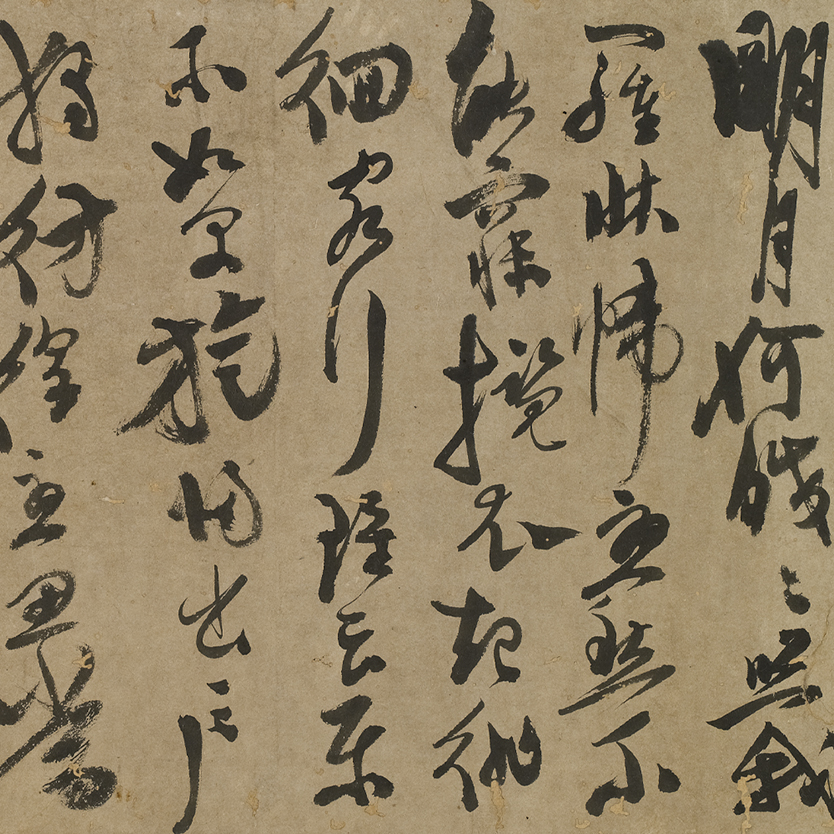 明月何皎〻照我
羅牀幃憂愁不
能寐攬衣起徘
徊客行雖云樂
不如早旋歸出戶
獨彷徨愁思當